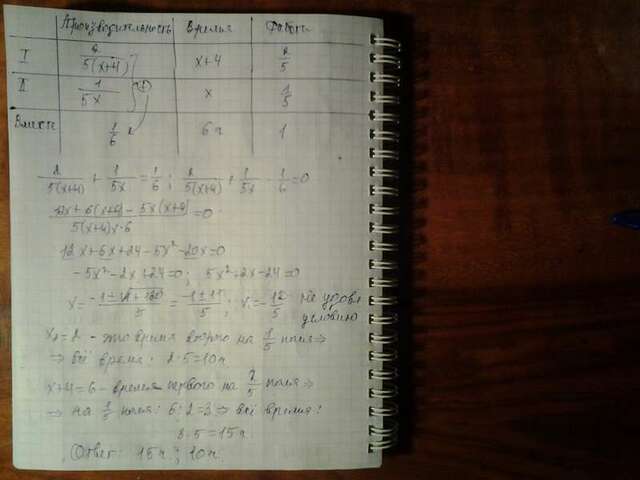 Производительность Время Работа
I 2/5(x+4) x+4 2/5
II 1/5x x 1/5
Вместе 1/6 6ч 1
2/5(x+4) + 1/5x = 1/6 ; 2/5(x+4) + 1/5x - 1/6 = 0
12x + 6(x+4) - 5x(x+4)/5(x+4)x·6 = 0
12x + 6x + 24 - 5x² - 20x = 0
-5x² - 2x + 24 = 0; 5x² + 2x - 24 = 0
x = -1±√1+120/5 = -1±11/5 ; x = -12/5 не удовл.
условию
x₂ = 2 - это время второго на 1/5 поля ⇒
⇒ всё время: 2·5=10ч.
x+4=6 - время первого на 2/5 поля ⇒
⇒ на 1/5 поля: 6:2=3 ⇒ всё время:
3·5=15ч
Ответ: 15ч.; 10ч.